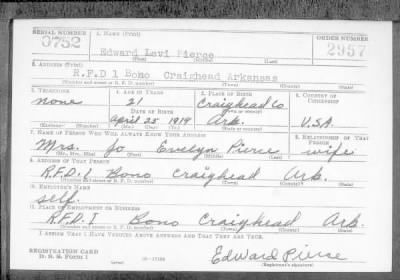 SERIAL NUMBER 1. NAME (Print) ORDER NUMBER
Edward Levi Pierce 2957
(First) (Middle) (Last)
2. ADDRESS (Print)
R.F.D 1 Bono Craighead Arkansas
(Number and street or R. F. D. number) (Town) (County) (State)
3. TELEPHONE 4. AGE IN YEARS 5. PLACE OF BIRTH 6. COUNTRY OF CITIZENSHIP
none 21 Craighead Co
DATE OF BIRTH
April 25 1919 Ark. U.S.A.
(Exchange) (Number) (Mo.) (Day) (Yr.) (State or country)
7. NAME OF PERSON WHO WILL ALWAYS KNOW YOUR ADDRESS 8. RELATIONSHIP OF THAT PERSON
Mrs. Jo Evelyn Pierce wife
(Mr., Mrs., Miss) (First) (Middle) (Last)
9. ADDRESS OF THAT PERSON
R.F.D. 1 Bono Craighead Ark.
(Number and street or R. F. D. number) (Town) (County) (State)
10. EMPLOYER'S NAME
self.
11. PLACE OF EMPLOYMENT OR BUSINESS
R.F.D. 1 Bono Craighead Ark.
(Number and street or R. F. D. number) (Town) (County) (State)
I AFFIRM THAT I HAVE VERIFIED ABOVE ANSWERS AND THAT THEY ARE TRUE.
REGISTRATION CARD
D. S. S. Form 1 (over) Edward Pierce
(Registrant's signature)